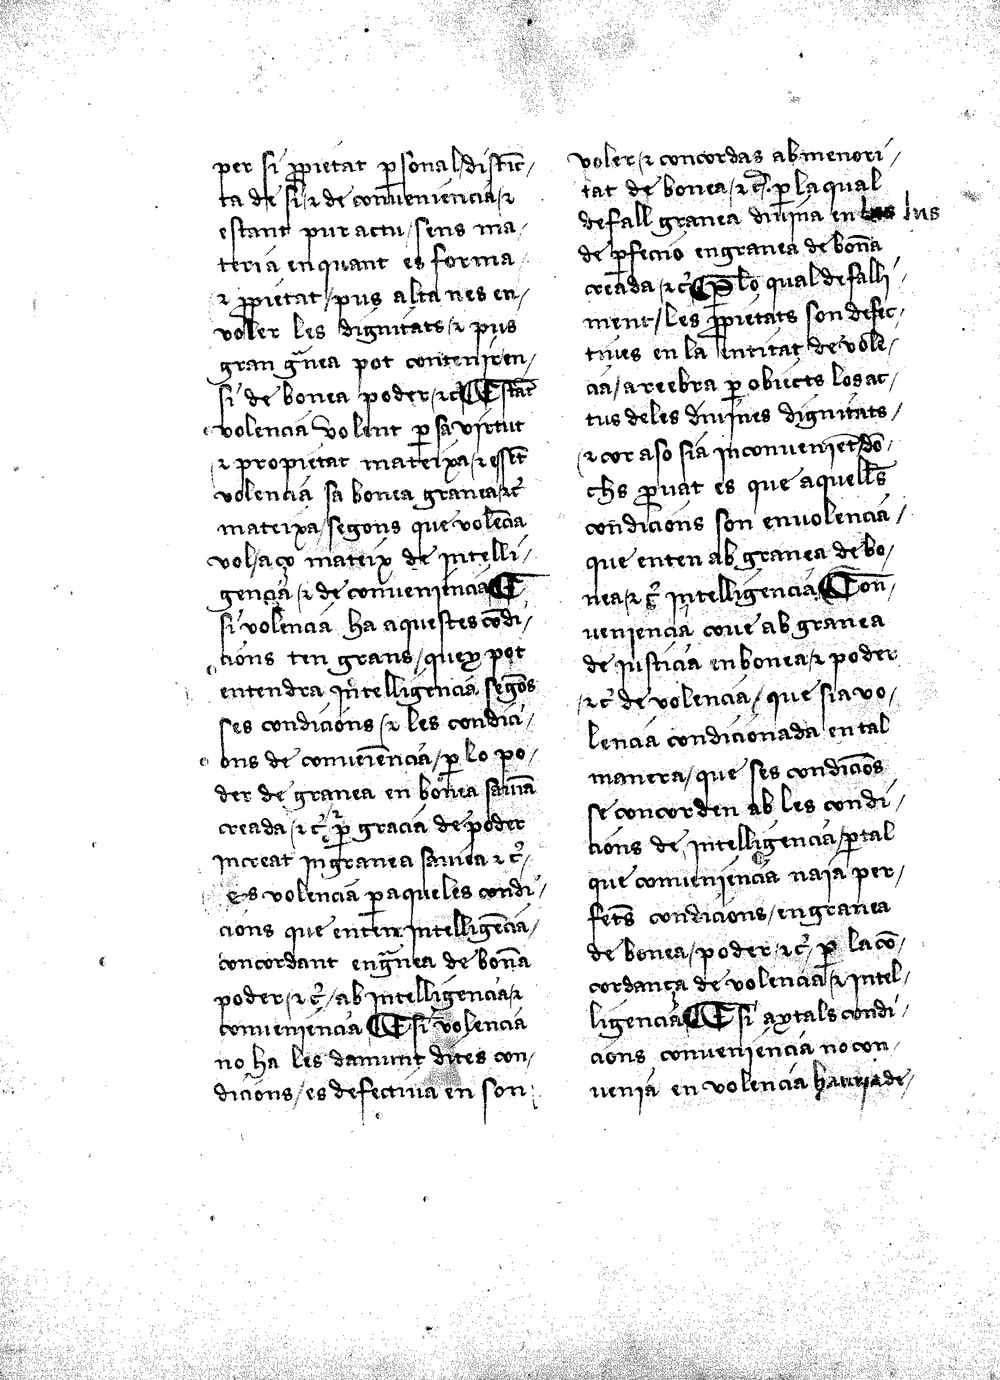 per si ꝓpietat ꝑsonal / distīc /
ta de si / ⁊ de conueniencia / ⁊
estant pur actu / sens ma /
teria en quant es forma /
⁊ ꝓpietat / pus alta nes en /
voler les dignitats / ⁊ pus
gran gn̄ea pot contenir en /
si de bonea poder / ⁊c̄ Estāt
volencia volent ꝑ sa virtut
⁊ propietat mateixa / ⁊ essēt
volencia sa bonea granea / ⁊c̄
mateixa / segons que volēcia
vol / aço mateix de intelli /
gencia / ⁊ de conueniencia E
si volencia ha aquestes cōdi /
cions ten grans / quey pot
entendra intelligencia segōs
ses condicions / ⁊ les condici /
ons de conueniēcia / ꝑ lo po /
der de granea en bonea
creada / ⁊c̄ ꝑ gracia de poder
increat in granea ⁊c̄ /
es volencia ꝑ aqueles condi /
cions que enten intelligēcia /
concordant en gn̄ea de bon̄a
poder / ⁊c̄ / ab intelligencia / ⁊
conueniencia E si volencia
no ha les damunt dites con /
dicions / es defectiua en son
voler / ⁊ concordas ab menori /
tat de bonea / ⁊c̄ / ꝑ la qual
defall granea diuina en lus
de ꝑfecio en granea de bon̄a
creada / ⁊c̄ Ꝑ lo qual defalli /
ment / les ꝓpietats son defec /
tiues en la entitat de vole /
cia / a reebra ꝑ obiects los ac /
tus de les diuines dignitats /
⁊ cor aso sia inconueniēt / dō /
chs ꝓuat es que aquells
condicions son en volencia /
que enten ab granea de bo /
nea / ⁊c̄ intelligencia Con /
ueniencia coue ab granea
de iusticia en bonea / ⁊ poder
⁊c̄ de volencia / que sia vo /
lencia condicionada en tal
manera / que ses condiciōs
se concorden ab les condi /
cions de intelligencia / ꝑ tal
que conueniencia naia per /
fets condicions / en granea
de bonea / poder / ⁊c̄ / ꝑ la cō /
cordança de volencia / ⁊ intel /
ligencia E si aytals condi /
cions conueniencia no con /
uenia en volencia hauria de /